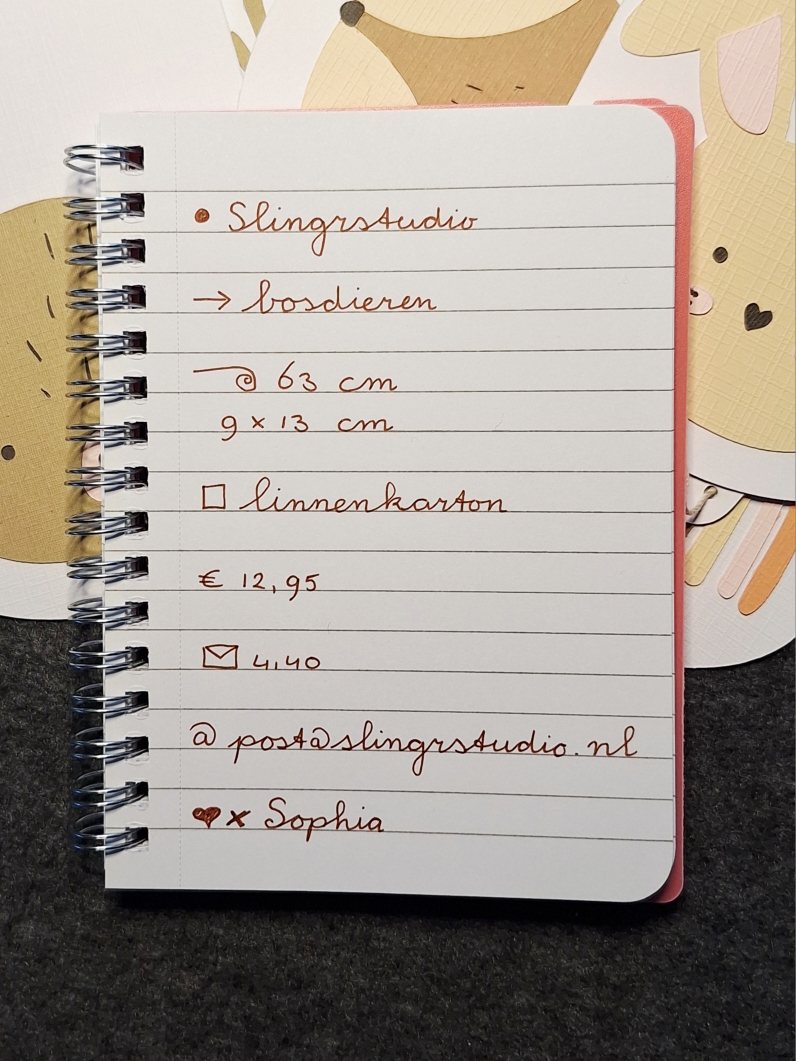 • Slingrstudio
→ bosdieren
63 cm
9 x 13 cm
□ linnenkarton
€ 12,95
✉ 4,40
@ post@slingrstudio.nl
♥ x Sophia